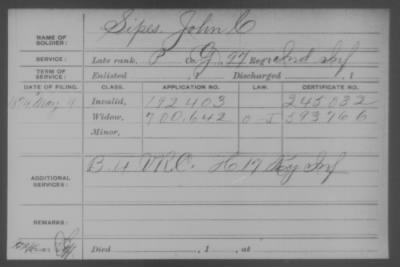 NAME OF SOLDIER: Sipes, John C
SERVICE: Late rank, P Co. G, 27 Reg't Ind Inf
TERM OF SERVICE: Enlisted , 1 Discharged , 1
DATE OF FILING. CLASS. APPLICATION NO. LAW. CERTIFICATE NO.
May Invalid, 192403 245032
Widow, 700,642 593766
Minor,
ADDITIONAL SERVICES: B. 4 VRC. H 17 Ky Inf
REMARKS:
Died , 1 , at